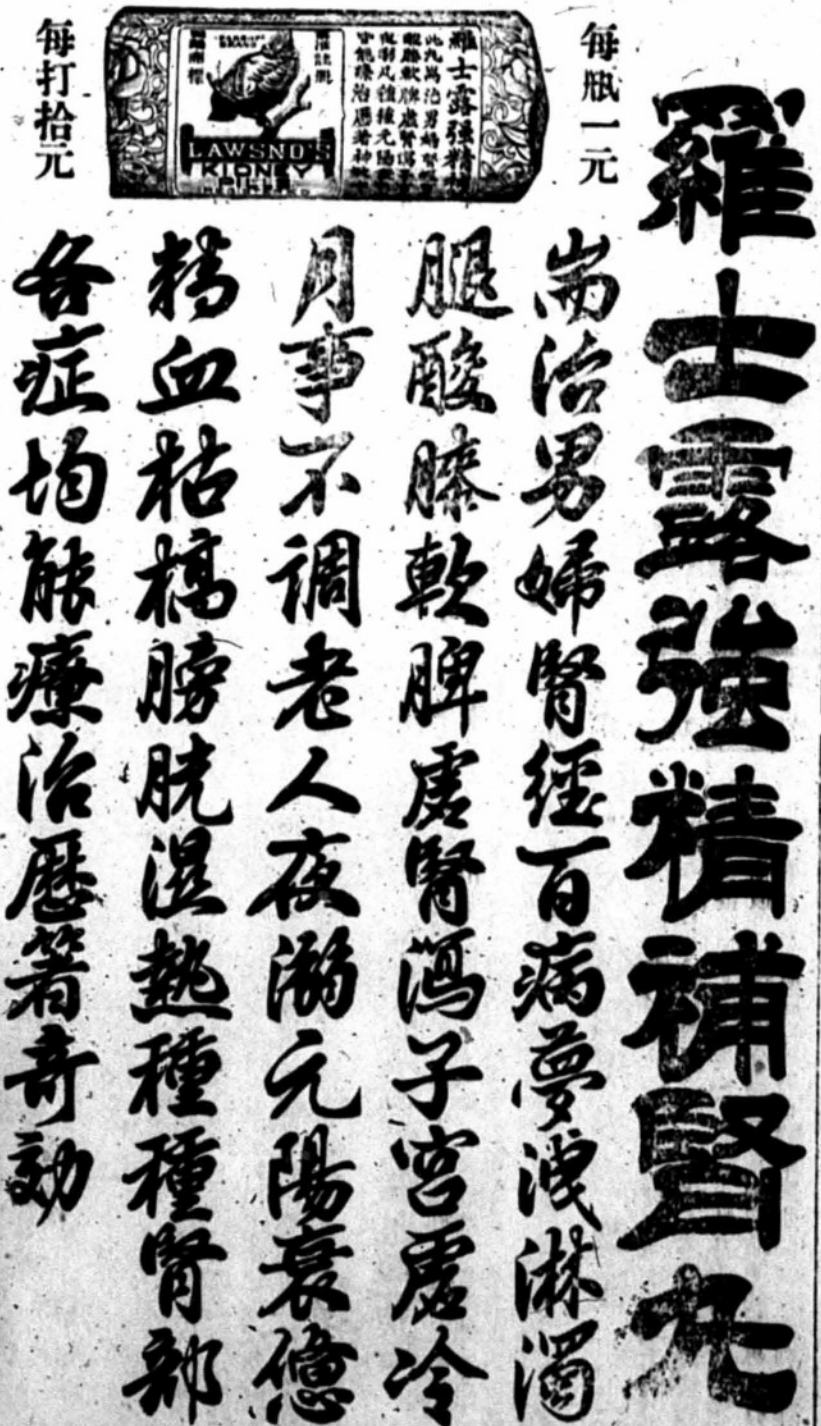 羅士露強精補腎丸
每瓶一元
羅士露強精
LAWSNO'S
KIDNEY
每打拾元
耑治男婦腎經百病夢洩淋濁
腿酸膝軟脾虛腎瀉子宮虛冷
月事不調老人夜溺元陽衰憊
精血枯槁膀胱濕熱種種腎部
各症均能療治歷著奇効